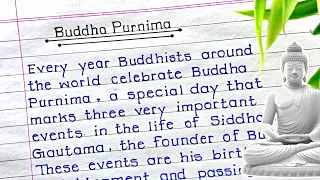 Buddha Purnima
Every year Buddhists around
the world celebrate Buddha
Purnima, a special day that
marks three very important
events in the life of
Gautama, the founder of
These events are his
and